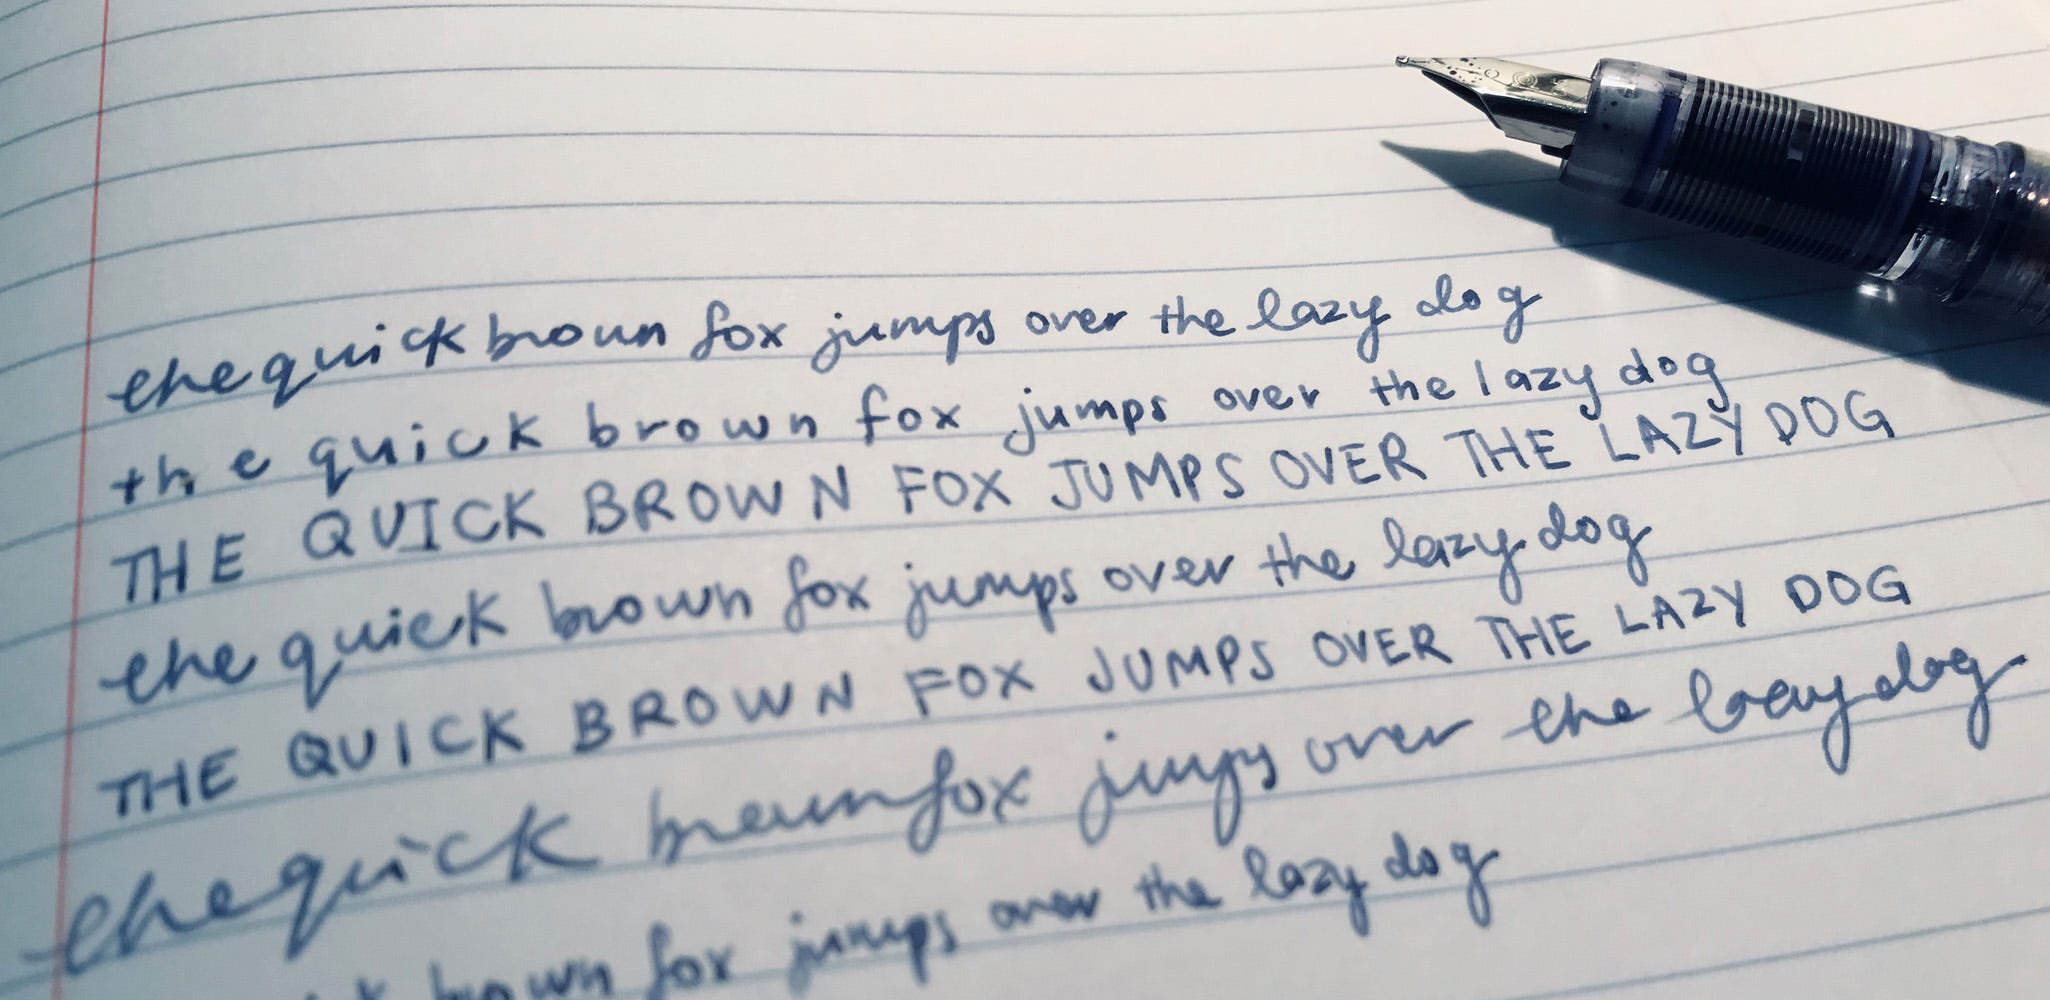 the quick brown fox jumps over the lazy dog
the quick brown fox jumps over the lazy dog
THE QUICK BROWN FOX JUMPS OVER THE LAZY DOG
the quick brown fox jumps over the lazy dog
THE QUICK BROWN FOX JUMPS OVER THE LAZY DOG
the quick brown fox jumps over the lazy dog
brown fox jumps over the lazy dog